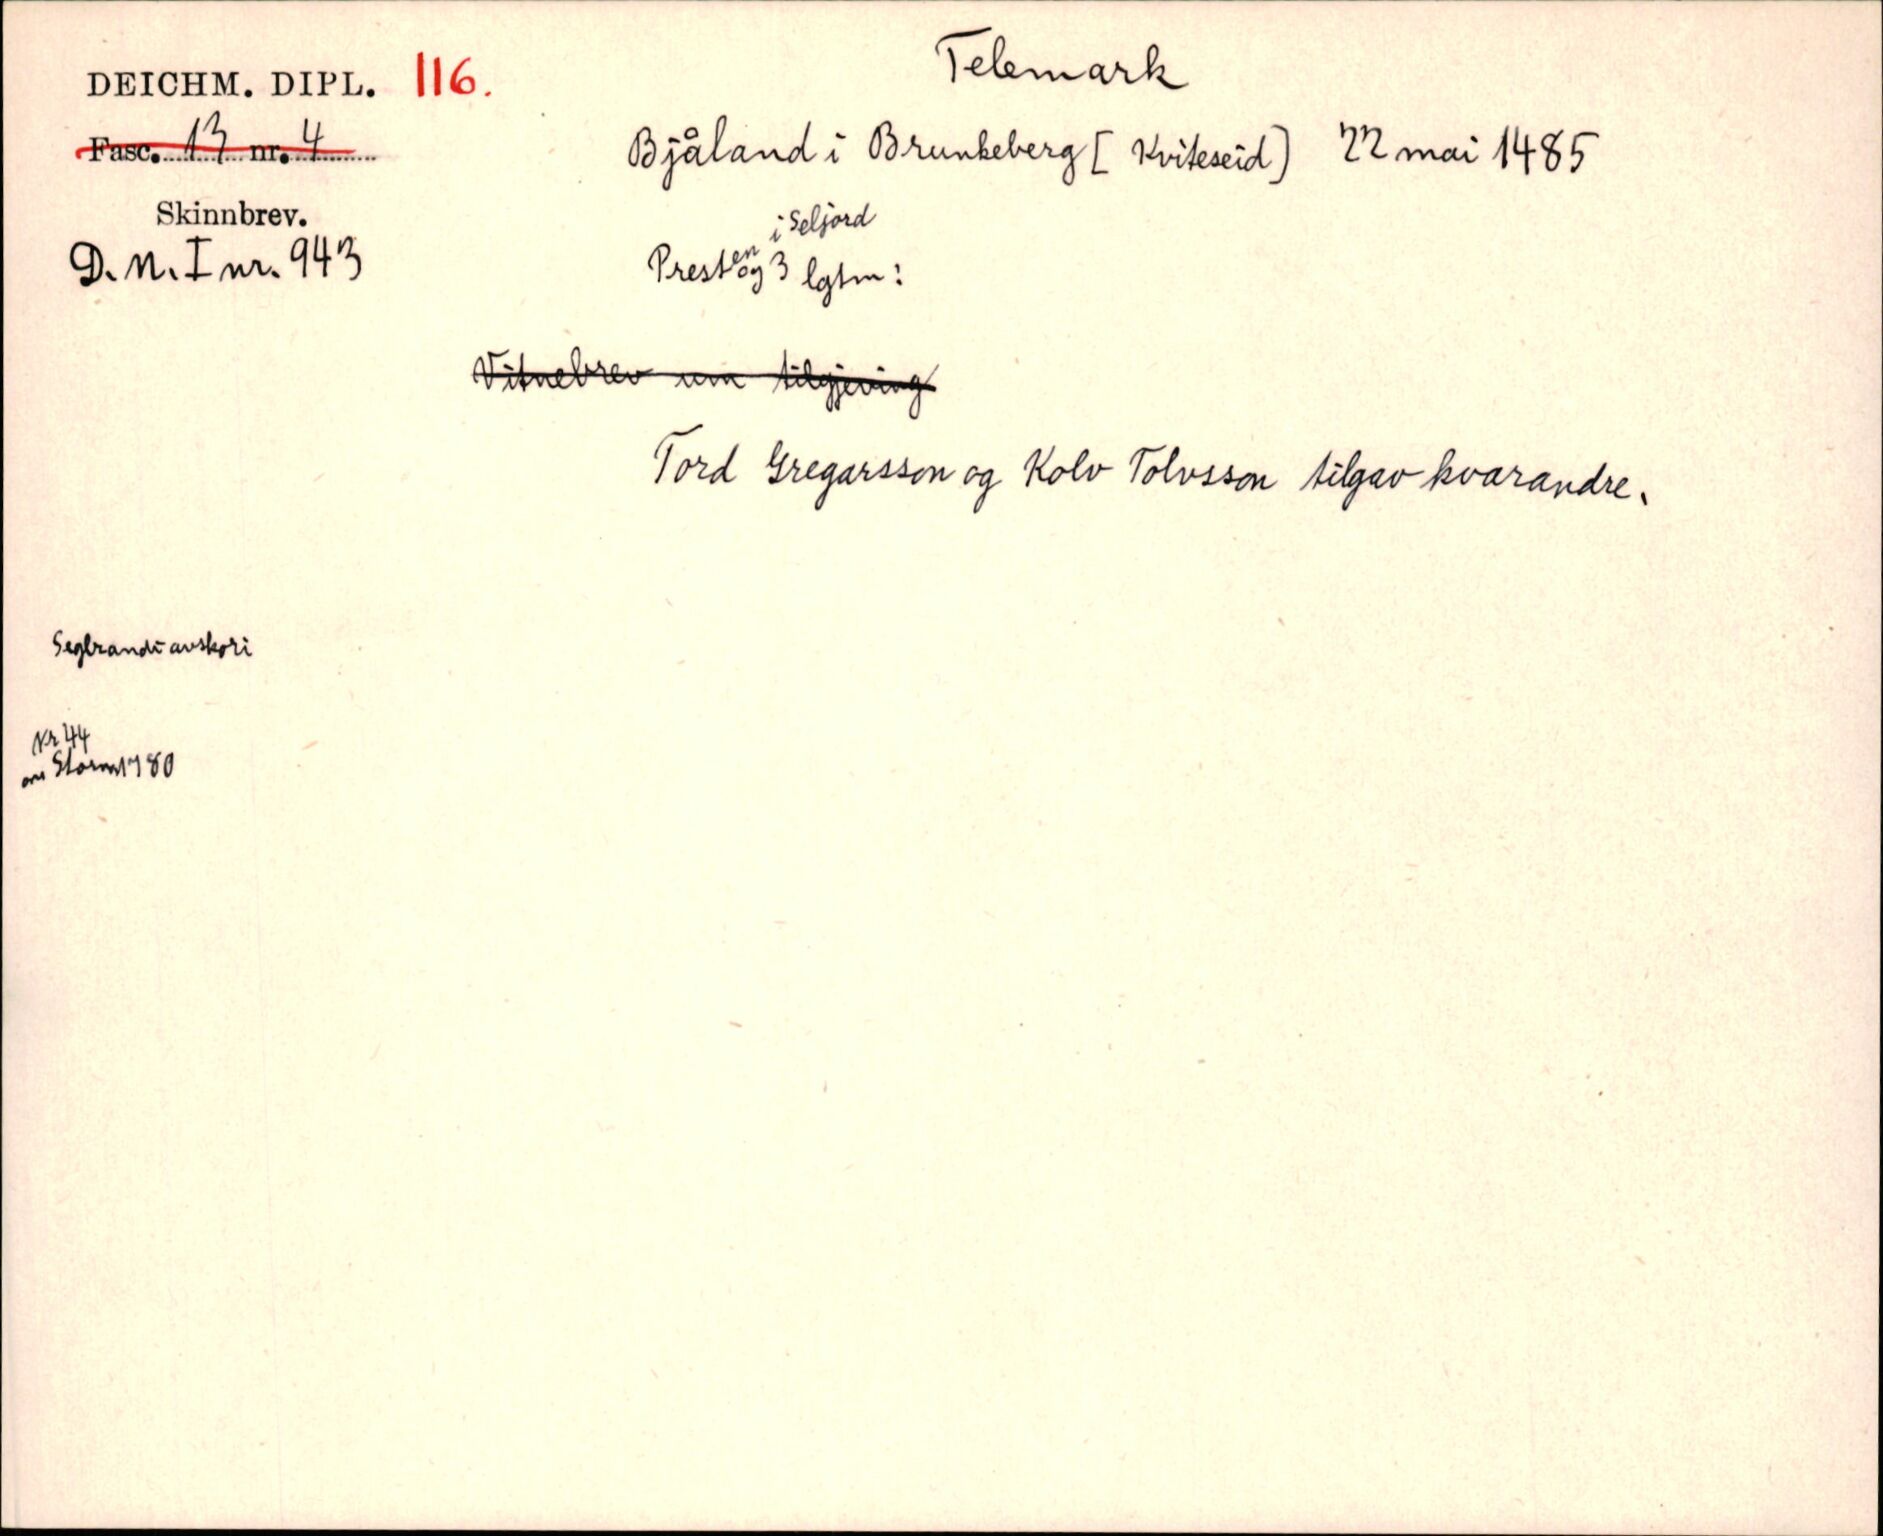 Telemark
DEICHM. DIPL. 116.
Fasc. 13 nr. 4
Bjåland i Brunkeberg [Kviteseid] 22 mai 1485
Skinnbrev.
D.N. I nr. 943
Presten i Seljord og 3 lgtm:
Vitnebrev um tilgjeving
Tord Gregarsson og Kolv Tolvsson tilgav kvarandre.
Seglrandi avskori
Nr 44
Storm 1780